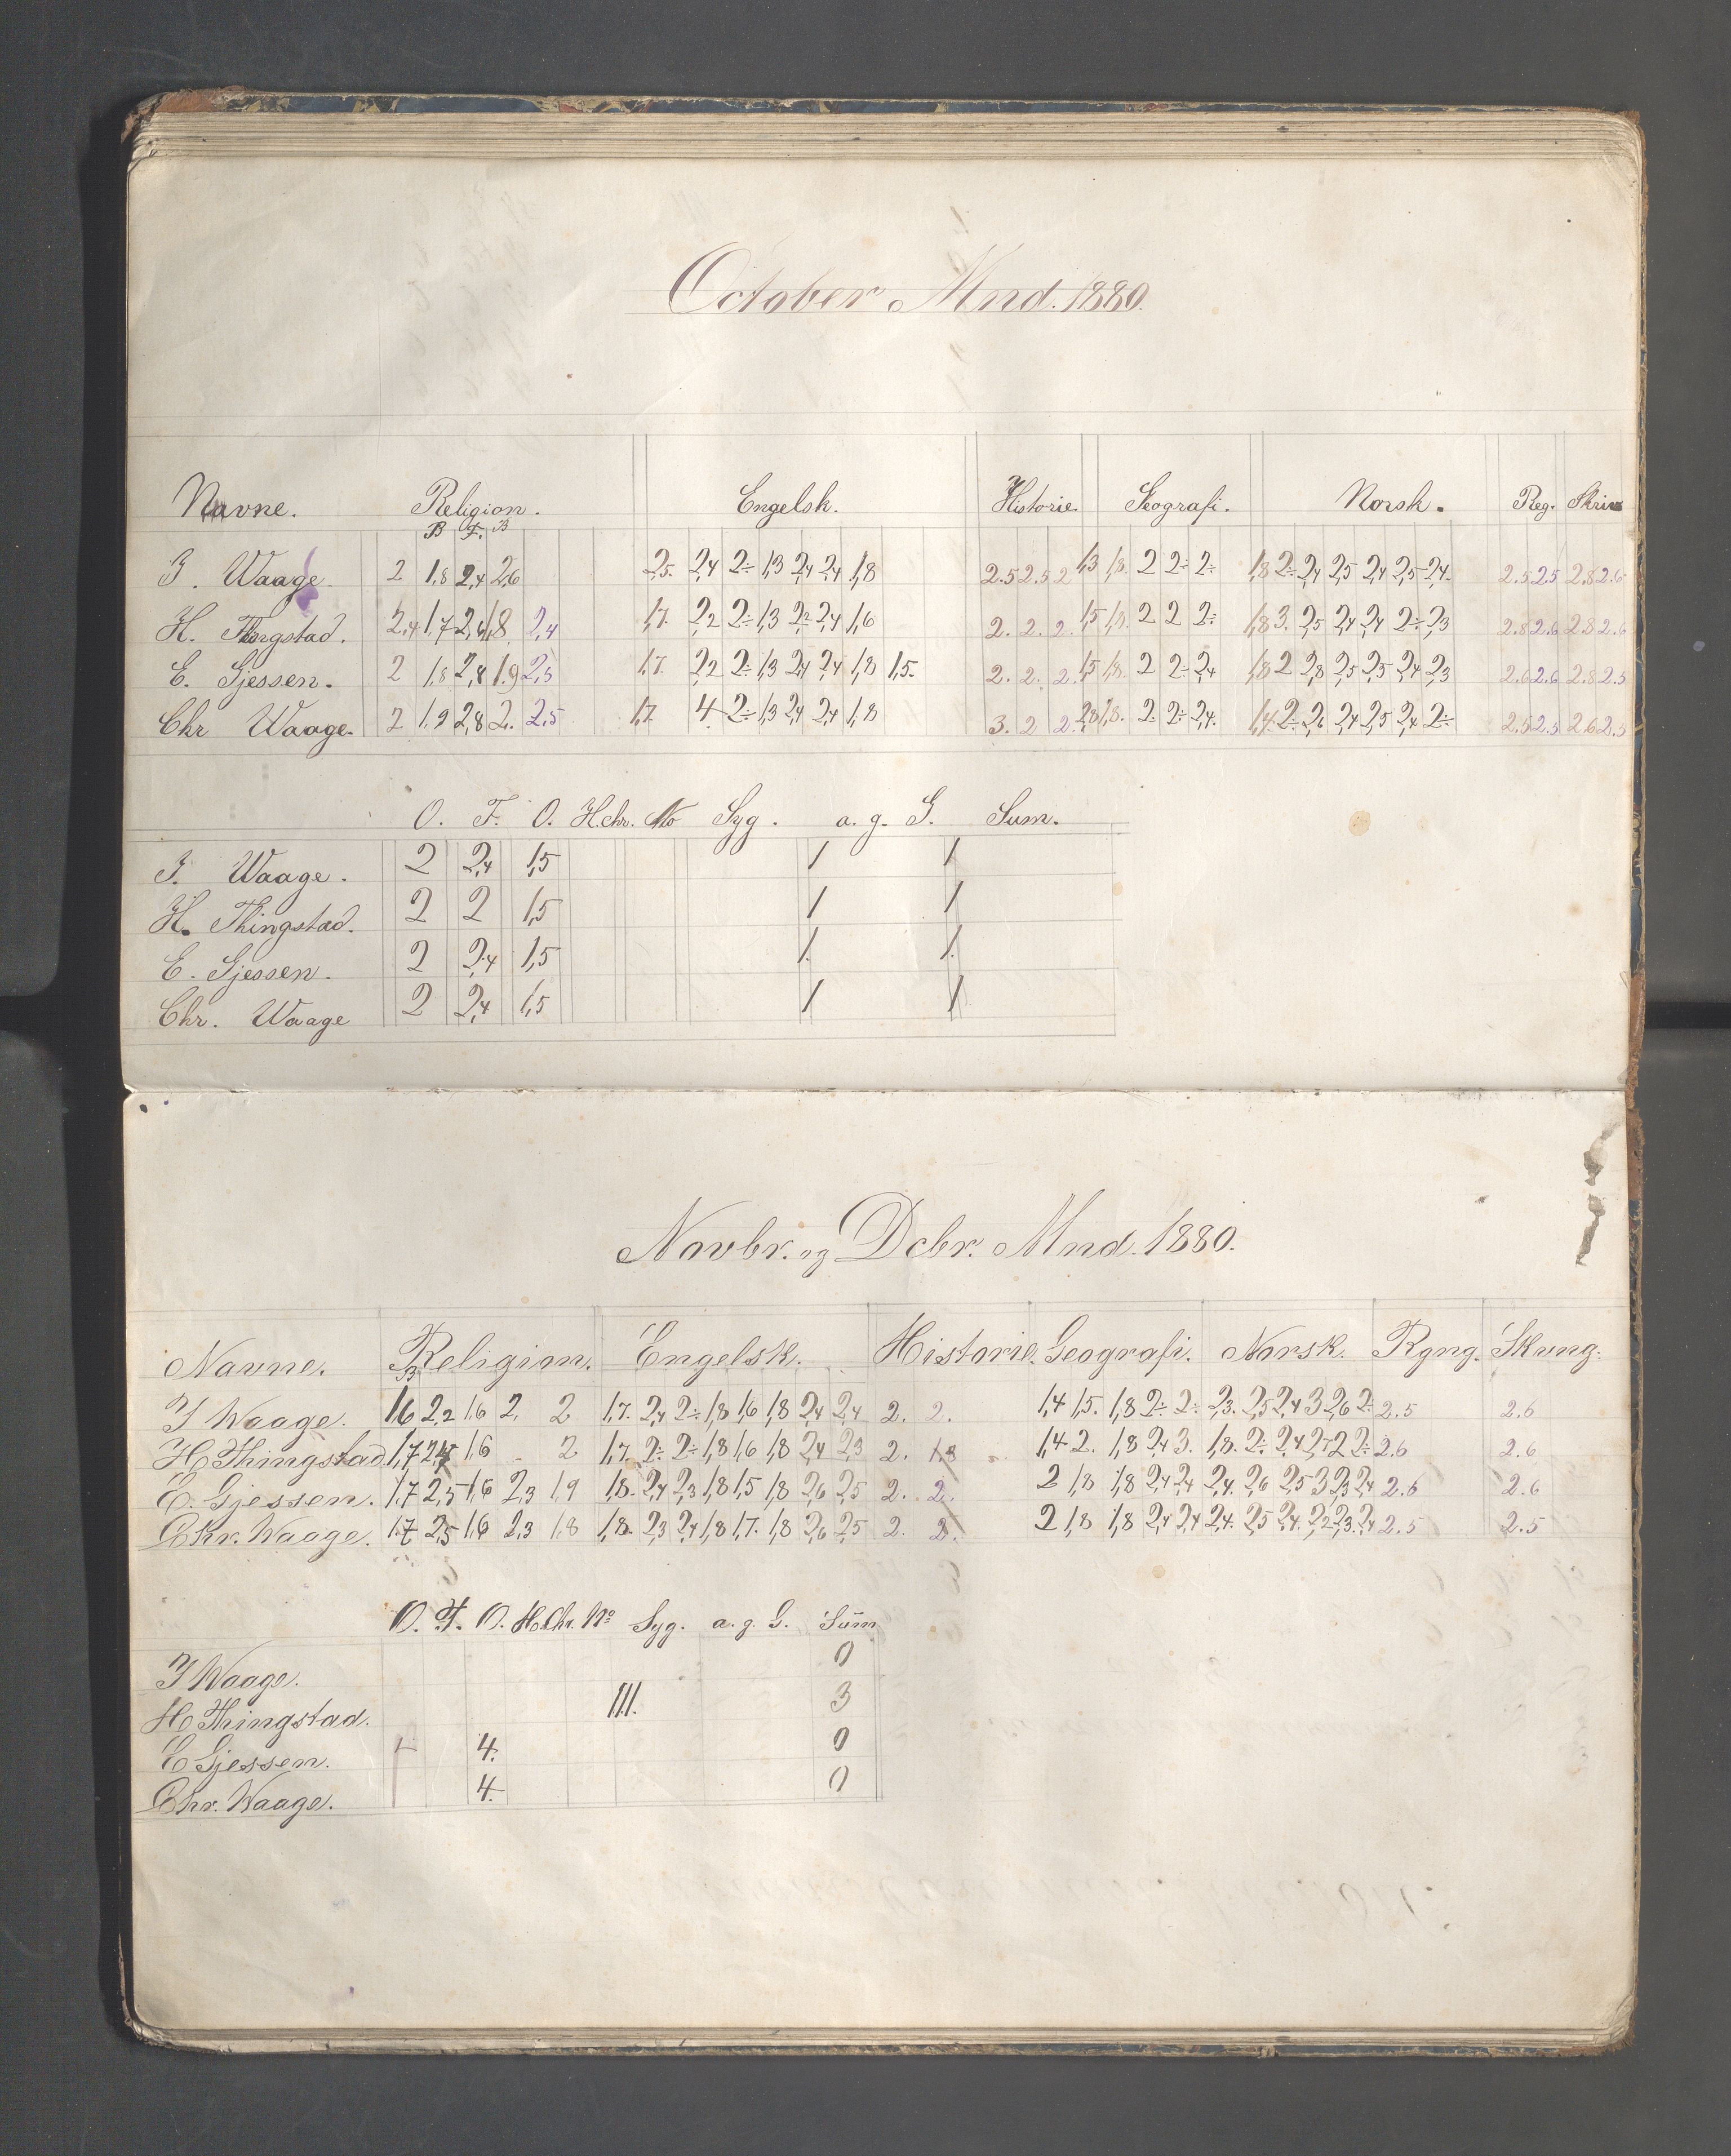 October Mnd. 1880.
Navne. Religion. Engelsk. Historie. Geografi. Norsk. Reg. Skriv
B F. B
J. Waage. 2 1,8 2,4 2,6 2,5. 2,4 2÷ 1,3 2,4 2,4 1,8 2.5 2.5 2 1,3 1,8. 2 2÷ 2÷ 1,8 2÷ 2,4 2,5 2,4 2,5 2,4. 2.5 2.5 2.8 2.6
H. Thingstad. 2,4 1,7 2,4 1,8 2,4 1,7. 2,2 2÷ 1,3 2,2 2,4 1,6 2. 2. 2. 1,5 1,8. 2 2 2÷ 1,8 3. 2,5 2,4 2,4 2÷ 2,3 2.8 2.6 2.8 2.6
E. Gjessen. 2 1,8 2,8 1.9 2,5 1,7. 2,2 2÷ 1,3 2,4 2,4 1,8 1,5. 2. 2. 2. 1,5 1,8. 2 2÷ 2,4 1,8 2 2,8 2,5 2,5 2,4 2,3 2.6 2.6 2.8 2.5
Chr Waage. 2 1.9 2,8 2. 2,5 1,7. 4 2÷ 1,3 2,4 2,4 1,8 3. 2 2. 2,8 1,8. 2÷ 2÷ 2,4. 1,4. 2÷ 2,6 2,4 2,5 2,4 2÷ 2.5 2.5 2.6 2.5
O. F. O. H.Chr. No Syg. a. g. G. Sum.
J. Waage. 2 2,4 1,5 1 1
H. Thingstad. 2 2 1,5 1 1
E. Gjessen. 2 2,4 1,5 1. 1.
Chr. Waage 2 2,4 1,5 1 1
Novbr. og Dcbr. Mnd. 1880.
Navne. Religion. Engelsk. Historie. Geografi. Norsk. Rgng. Skvng.
B
J Waage. 1,6 2,2 1,6 2, 2 1,7. 2,4 2÷ 1,8 1,6 1,8 2,4 2,4 2. 2. 1,4 1,5. 1,8 2÷ 2÷ 2,3. 2,5 2,4 3 2,6 2÷ 2.5 2.6
H Thingstad 1,7 1,6 2 1,7. 2÷ 2÷ 1,8 1,6 1,8 2,4 2,3 2. 1,8 1,4 2. 1,8 2,4 3. 1,8. 2÷ 2,4 2,7 2 2÷ 2.6 2.6
E. Gjessen. 1,7 2,5 1,6 2,3 1,9 1,8. 2,4 2,3 1,8 1,5 1,8 2,6 2,5 2. 2. 2 1,8 1,8 2,4 2,4 2,4. 2,6 2,5 3 2,3 2,4 2.6 2.6
Chr. Waage. 1,7 2,5 1,6 2,3 1,8 1,8. 2,3 2,4 1,8 1,7. 1,8 2,6 2,5 2. 2. 2 1,8 1,8 2,4 2,4 2,4. 2,5 2,4. 2,2 2,3. 2,4 2.5 2.5
O. F. O. H.Chr. No Syg. a. g. G. Sum
J Waage. 0
H Thingstad. III. 3
E Gjessen. 4. 0
Chr. Waage. 4. 0